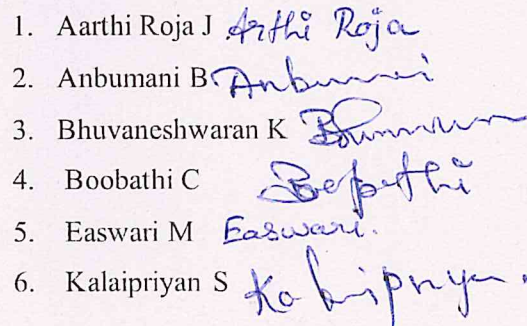 1. Aarthi Roja J Arthi Roja
2. Anbumani B Anbumani
3. Bhuvaneshwaran K
4. Boobathi C Boopathi
5. Easwari M Easwari.
6. Kalaipriyan S Kalaipriyan.